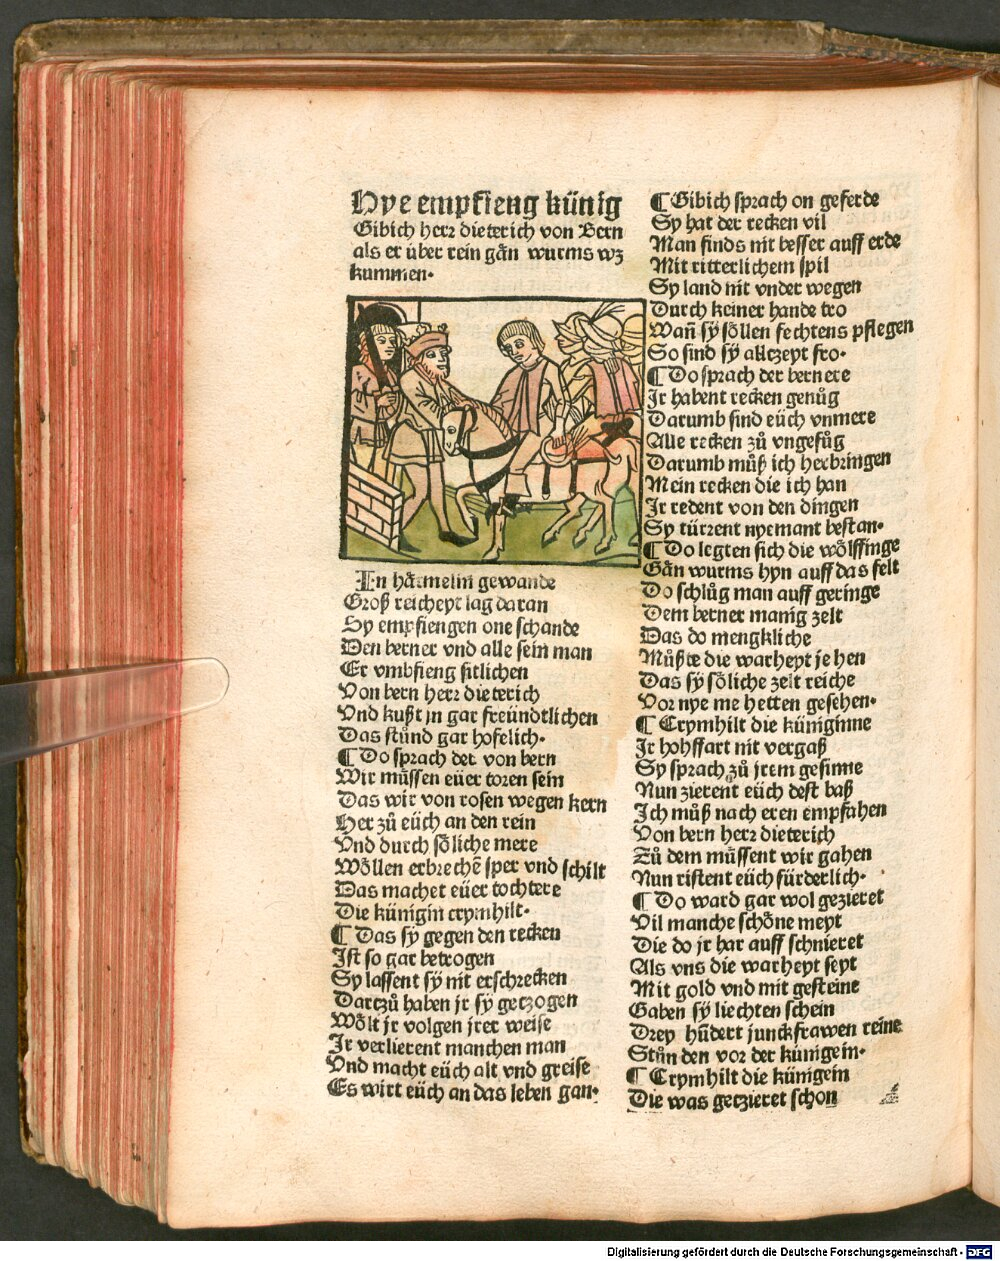 Hye empfieng künig
Gibich herr dieterich von Bern
als er über rein gān wurms wz
kummen.
In härmelin gewande
Groß reicheyt lag daran
Sy empfiengen one schande
Den berner vnd alle sein man
Er vmbfieng sitlichen
Von bern herr dieterich
Vnd kußt jn gar freündtlichen
Das stůnd gar hofelich.
¶ Do sprach der von bern
Wir müssen eüer toren sein
Das wir von rosen wegen kern
Her zů eüch an den rein
Vnd durch söliche mere
Wöllen erbrechē sper vnd schilt
Das machet eüer tochtere
Die künigin crymhilt.
¶ Das sy gegen den recken
Ist so gar betrogen
Sy lassent sÿ nit erschrecken
Dartzů haben jr sÿ getzogen
Wölt jr volgen jrer weise
Ir verlierent manchen man
Vnd macht eüch alt vnd greise
Es wirt eüch an das leben gan.
¶ Gibich sprach on geferde
Sy hat der recken vil
Man finds nit besser auff erde
Mit ritterlichem spil
Sy land nit vnder wegen
Durch keiner hande tro
Wañ sÿ söllen fechtens pflegen
So sind sÿ alltzeyt fro.
¶ Do sprach der bernere
Ir habent recken genůg
Darumb sind eüch vnmere
Alle recken zů vngefůg
Darumb můß ich herbringen
Mein recken die ich han
Ir redent von den dingen
Sy türrent nyemant bestan.
¶ Do legten sich die wölffinge
Gān wurms hyn auff das felt
Do schlůg man auff geringe
Dem berner manig zelt
Das do mengkliche
Můßte die warheyt jehen
Das sÿ söliche zelt reiche
Vor nye me hetten gesehen.
¶ Crymhilt die küniginne
Ir hohffart nit vergaß
Sy sprach zů jrem gesinne
Nun zierent eüch dest baß
Ich můß nach eren empfahen
Von bern herr dieterich
Zů dem müssent wir gahen
Nun ristent eüch fürderlich.
¶ Do ward gar wol gezieret
Vil manche schöne meyt
Die do jr har auff schnieret
Als vns die warheyt seyt
Mit gold vnd mit gesteine
Gaben sÿ liechten schein
Drey hūdert junckfrawen reine
Stůnden vor der künigein.
¶ Crymhilt die künigein
Die was getzieret schon
Digitalisierung gefördert durch die Deutsche Forschungsgemeinschaft - DFG